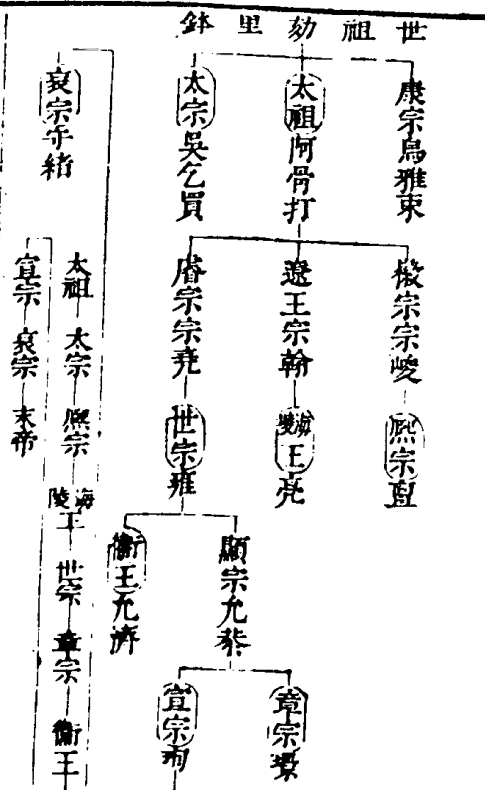 世祖劾里鉢
康宗烏雅束
太祖阿骨打
太宗吳乞買
徽宗宗峻
熙宗亶
遼王宗幹
海陵王亮
睿宗宗堯
世宗雍
顯宗允恭
衞王允濟
章宗璟
宣宗珣
哀宗守緒
太祖 太宗 熙宗 海陵王 世宗 章宗 衞王
宣宗 哀宗 末帝